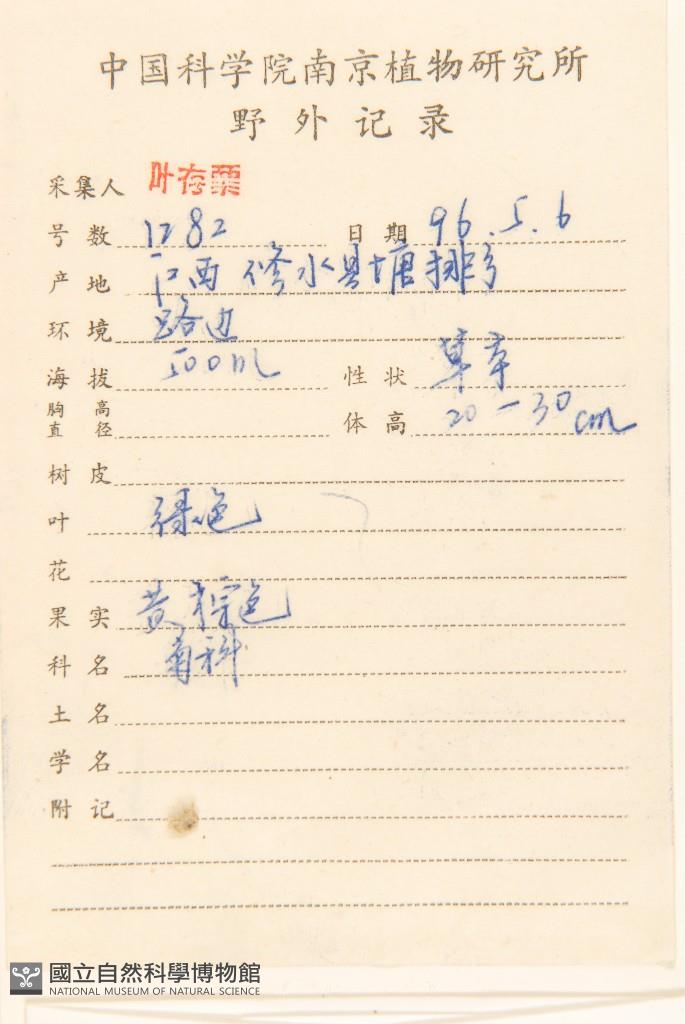 中国科学院南京植物研究所
野外记录
采集人 叶存粟
号数 1282 日期 96.5.6
产地 江西修水县塘排
环境 路边
海拔 500m 性状 草本
胸高直径 体高 20-30cm
树皮
叶 绿色
花
果实 黄棕色
科名 菊科
土名
学名
附记
國立自然科學博物館
NATIONAL MUSEUM OF NATURAL SCIENCE